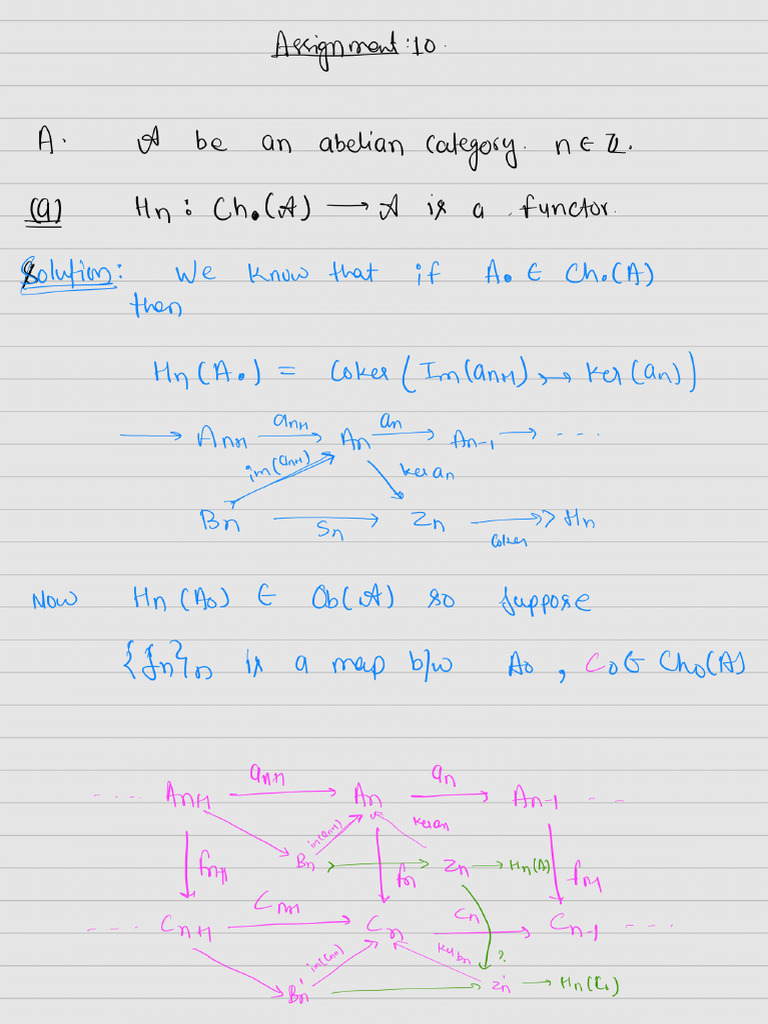 Assignment: 10.
A. 𝒜 be an abelian category. n ∈ ℤ.
(a) Hn : Ch•(𝒜) → 𝒜 is a functor.
Solution: We know that if A• ∈ Ch•(A)
then
Hn (A•) = Coker ( Im(an+1) ↣ Ker(an))
→ An+1 → An → An-1 → ...
an+1 an
im(an+1) ker an
Bn → Zn →> Hn
Sn Coker
Now Hn (A•) ∈ Ob(𝒜) so suppose
{fn}n is a map b/w A• , C• ∈ Ch•(A)
an+1 an
.... An+1 → An → An-1 ...
im(an+1) ker an
Bn → Zn → Hn(A)
fn+1 fn fn-1
Cn+1 Cn
.... Cn+1 → Cn → Cn-1 ....
im(cn+1) ker bn ?
Bn' → Zn' → Hn(C•)